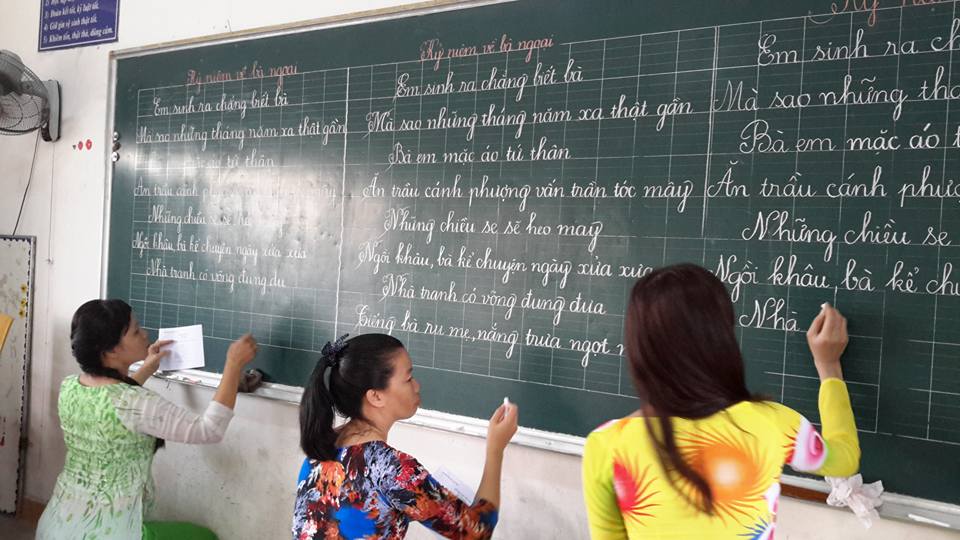 3) Đoàn kết tốt, kỷ luật tốt.
4) Giữ gìn vệ sinh thật tốt.
5) Khiêm tốn, thật thà, dũng cảm.
Kỷ niệm về bà ngoại
Em sinh ra chẳng biết bà
Mà sao những tháng năm xa thật gần
áo tứ thân
Ăn trầu cánh
Những chiều se sẽ heo
Ngồi khâu, bà kể chuyện ngày xửa xưa
Nhà tranh có võng đung đư
Kỷ niệm về bà ngoại
Em sinh ra chẳng biết bà
Mà sao những tháng năm xa thật gần
Bà em mặc áo tứ thân
Ăn trầu cánh phượng vấn trần tóc mây
Những chiều se sẽ heo may
Ngồi khâu, bà kể chuyện ngày xửa xưa
Nhà tranh có võng đung đưa
Tiếng bà ru mẹ, nắng trưa ngọt
Kỷ
Em sinh ra ch
Mà sao những th
Bà em mặc áo t
Ăn trầu cánh phượ
Những chiều se
Ngồi khâu, bà kể ch
Nhà